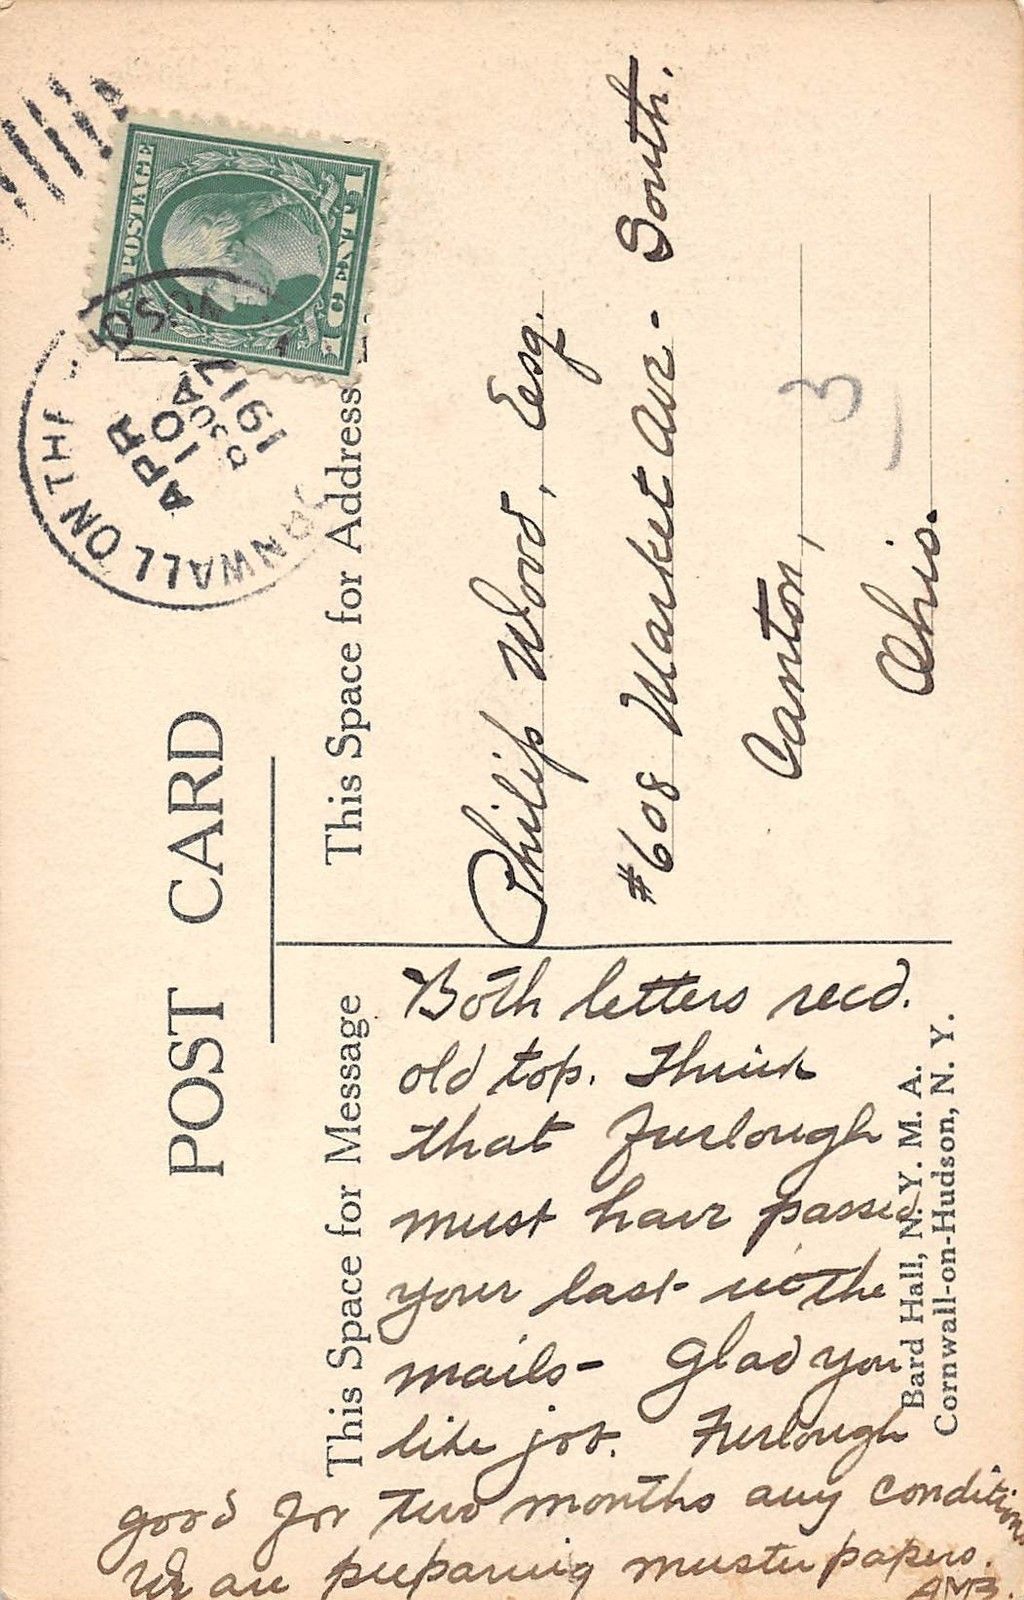 POST CARD
This Space for Address
This Space for Message
U.S. POSTAGE
1 CENT 1
CORNWALL ON THE HUDSON
APR
10
830A
1917
Philip Wood, Esq.
#608 Market Ave- South.
Canton,
Ohio.
3
Both letters recd.
old top. Think
that furlough
must have passed
your last in the
mails- Glad you
like job. Furlough
good for two months any condition.
We are preparing muster papers.
AMB.
Bard Hall, N. Y. M. A.
Cornwall-on-Hudson, N. Y.